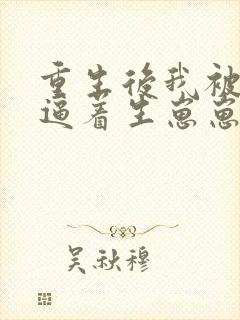 重生後我被
逼着生崽崽
吴秋穆